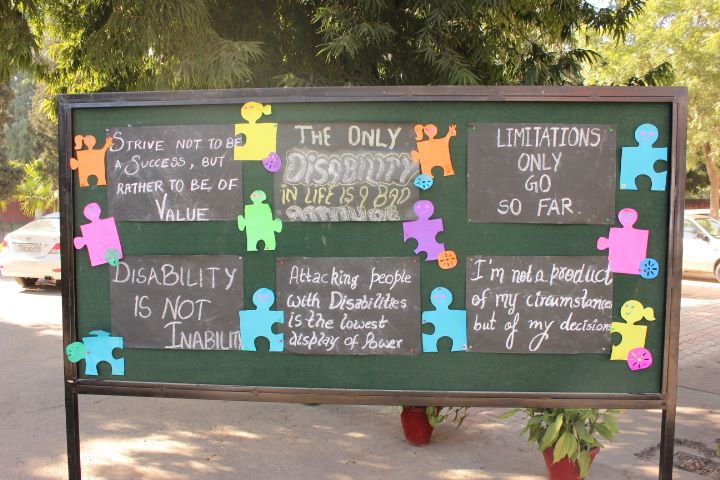 STRIVE NOT TO BE
A SUCCESS, BUT
RATHER TO BE OF
VALUE
THE ONLY
DISABILITY
IN LIFE IS A BAD
ATTITUDE
LIMITATIONS
ONLY
GO
SO FAR.
DISABILITY
IS NOT
INABILITY
Attacking people
with Disabilities
is the lowest
display of Power
I'm not a product
of my circumstances
but of my decisions